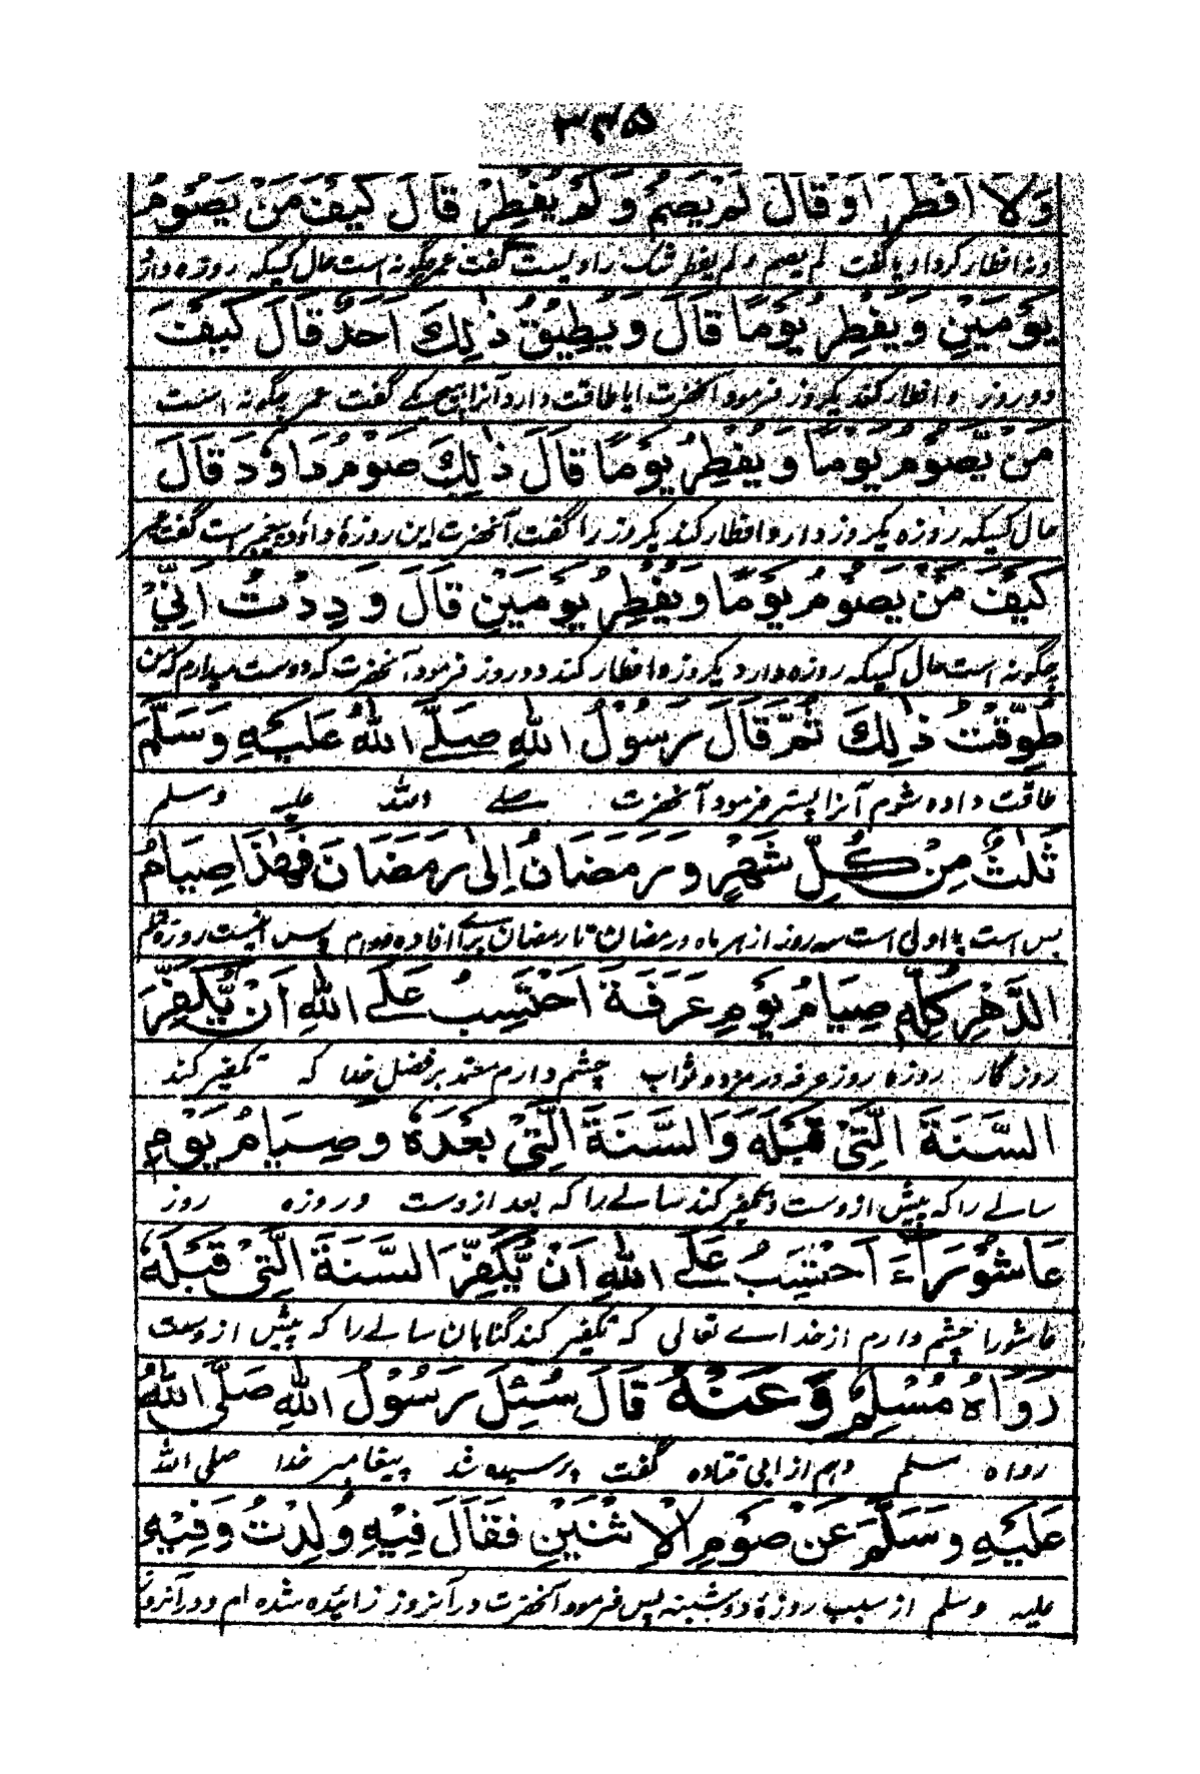 ۳۳۵
وَلَا اَفْطَرَ اَوْ قَالَ لَمْ يَصُمْ وَلَمْ يُفْطِرْ قَالَ كَيْفَ مَنْ يَصُوْمُ
ونه افطار کرد او یا گفت لم یصم ولم یفطر شک راویست گفت عمر چگونه است حال کسیکه روزه دارد
يَوْمَيْنِ وَيُفْطِرُ يَوْمًا قَالَ وَيُطِيْقُ ذٰلِكَ اَحَدٌ قَالَ كَيْفَ
دو روز و افطار کند یکروز فرمود آنحضرت ایا طاقت دارد آنرا هیچ یکے گفت عمر چگونه است
مَنْ يَّصُوْمُ يَوْمًا وَيُفْطِرُ يَوْمًا قَالَ ذٰلِكَ صَوْمُ دَاوٗدَ قَالَ
حال کسیکه روزه یکروز دارد وافطار کند یکروز را گفت آنحضرت این روزهٔ داؤد پیغمبر است گفت عمر
كَيْفَ مَنْ يَصُوْمُ يَوْمًا وَيُفْطِرُ يَوْمَيْنِ قَالَ وَدِدْتُ اَنِّيْ
چگونه است حال کسیکه روزه دارد یکروز وافطار کند دو روز فرمود آنحضرت که دوست میدارم که من
طُوِّقْتُ ذٰلِكَ ثُمَّ قَالَ رَسُوْلُ اللهِ صَلَّى اللهُ عَلَيْهِ وَسَلَّمَ
طاقت داده شوم آنرا پستر فرمود آنحضرت صلے الله علیه وسلم
ثَلٰثٌ مِنْ كُلِّ شَهْرٍ وَرَمَضَانُ اِلٰى رَمَضَانَ فَهٰذَا صِيَامُ
بس است یا اولی است سه روز از هر ماه ورمضان تا رمضان برائے افاده دوام پس اینست روزه
الدَّهْرِ كُلِّهٖ صِيَامُ يَوْمِ عَرَفَةَ اَحْتَسِبُ عَلَى اللهِ اَنْ يُّكَفِّرَ
روزگار روزه روز عرفه در مزد وثواب چشم دارم معتمد بر فضل خدا که تکفیر کند
السَّنَةَ الَّتِىْ قَبْلَهٗ وَالسَّنَةَ الَّتِىْ بَعْدَهٗ وَصِيَامُ يَوْمِ
سالے را که پیش از وست وتکفیر کند سالے را که بعد از وست وروزه روز
عَاشُوْرَاءَ اَحْتَسِبُ عَلَى اللهِ اَنْ يُّكَفِّرَ السَّنَةَ الَّتِىْ قَبْلَهٗ
عاشورا چشم دارم از خداے تعالی که تکفیر کند گناهان سالے را که پیش از وست
رَوَاهُ مُسْلِمٌ وَعَنْهُ قَالَ سُئِلَ رَسُوْلُ اللهِ صَلَّى اللهُ
رواه مسلم وهم از ابی قتاده گفت پرسیده شد پیغامبر خدا صلی الله
عَلَيْهِ وَسَلَّمَ عَنْ صَوْمِ الْاِثْنَيْنِ فَقَالَ فِيْهِ وُلِدْتُ وَفِيْهِ
علیه وسلم از سبب روزهٔ دوشنبه پس فرمود آنحضرت در آنروز زائیده شده ام ودر آنروز